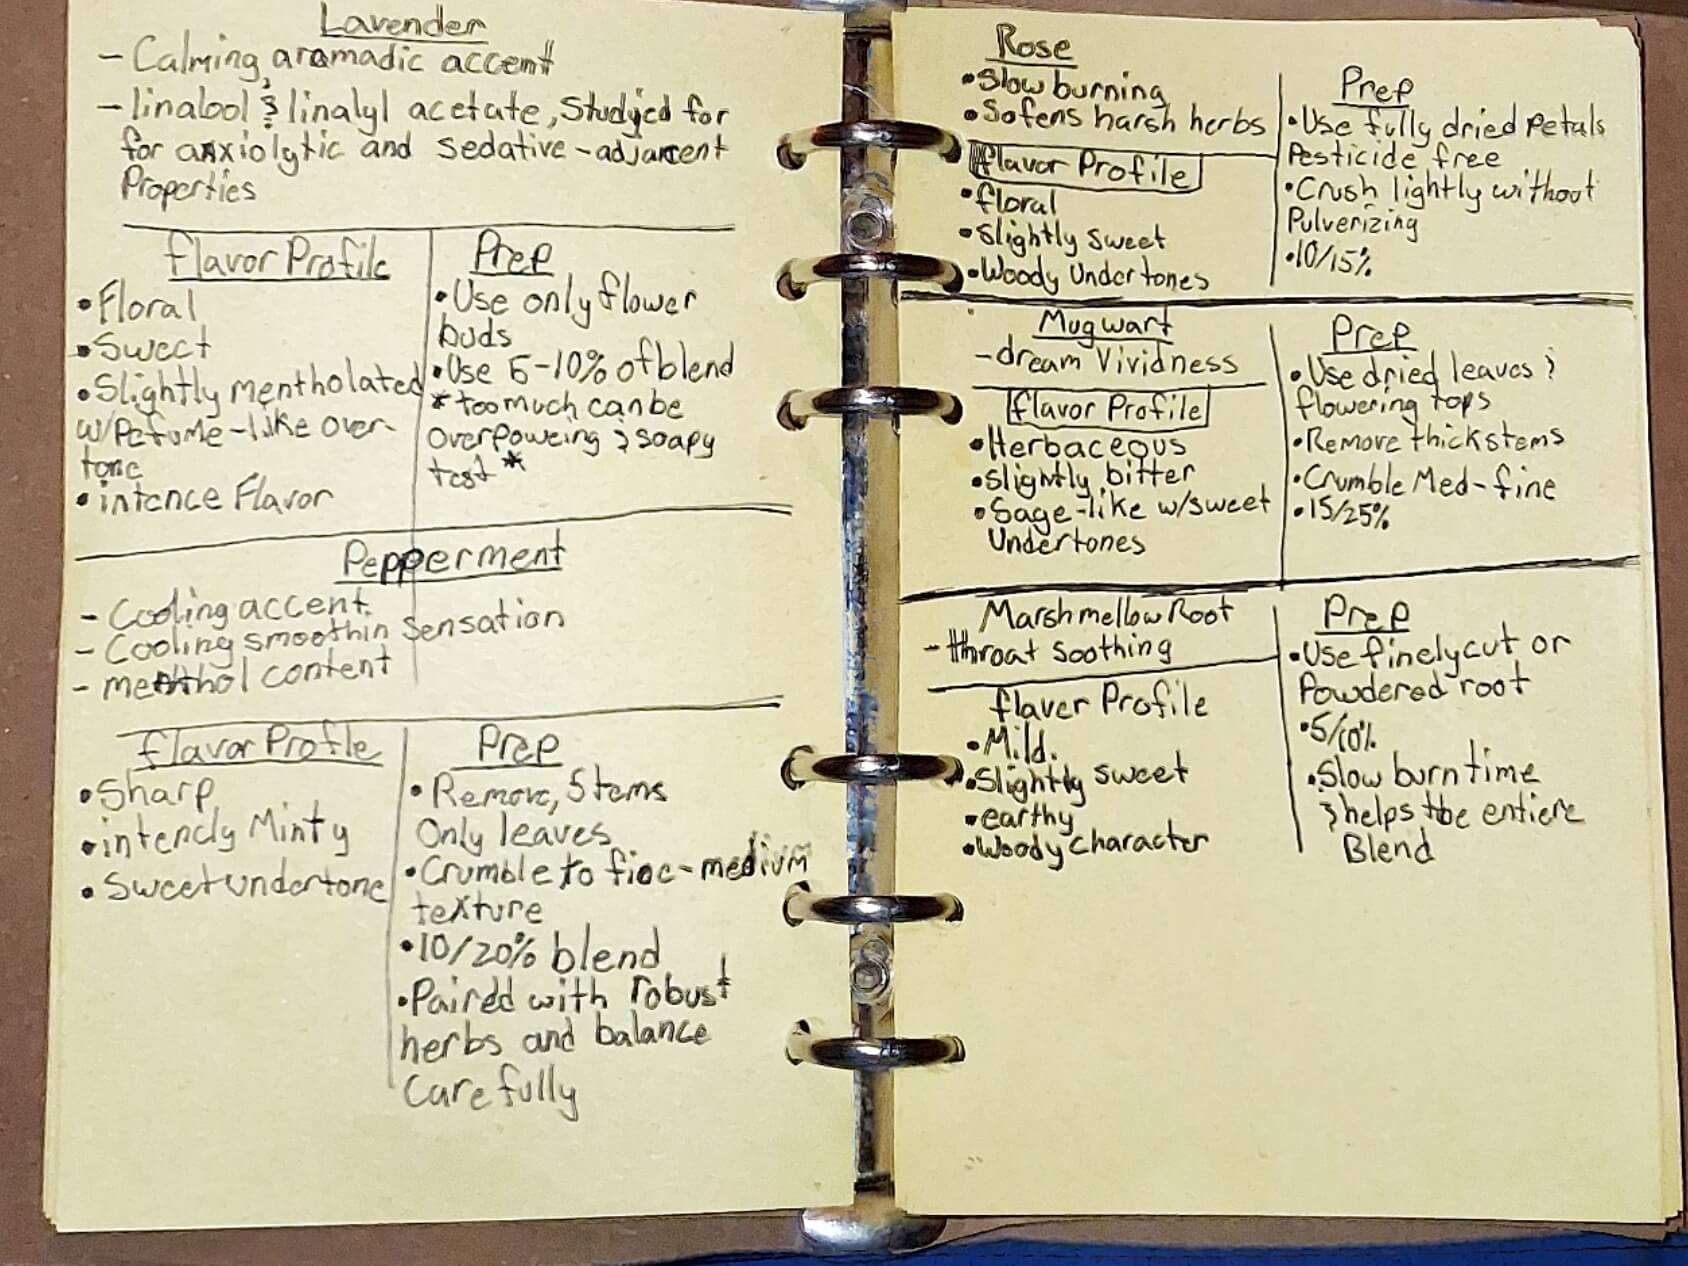 Lavender
- Calming, aromadic accent
- linalool & linalyl acetate, Studied for
for anxiolytic and sedative-adjancent
Properties
flavor Profile
• Floral
• Sweet
• Slightly mentholated
w/Pefume-like over-
tone
• intence Flavor
Prep
• Use only flower
buds
• Use 5-10% of blend
* too much can be
overpoweing & soapy
test *
Pepperment
- Cooling accent
- Cooling smoothin sensation
- menthol content
flavor Profle
• Sharp
• intencly Minty
• Sweet undertone
Prep
• Remove, Stems
Only leaves
• Crumble to fine-medium
texture
• 10/20% blend
• Paired with robust
herbs and balance
Carefully
Rose
• Slow burning
• Sofens harsh herbs
flavor Profile
• floral
• Slightly sweet
• Woody Undertones
Prep
• Use fully dried petals
Pesticide free
• Crush lightly without
Pulverizing
• 10/15%
Mugwart
- dream Vividness
flavor Profile
• Herbaceous
• Slightly bitter
• Sage-like w/sweet
Undertones
Prep
• Use dried leaves &
flowering tops
• Remove thick stems
• Crumble Med-fine
• 15/25%
Marshmellow Root
- throat soothing
flaver Profile
• Mild.
• Slightly sweet
• earthy
• Woody character
Prep
• Use finely cut or
Powdered root
• 5/10%
• Slow burn time
& helps the entiere
Blend